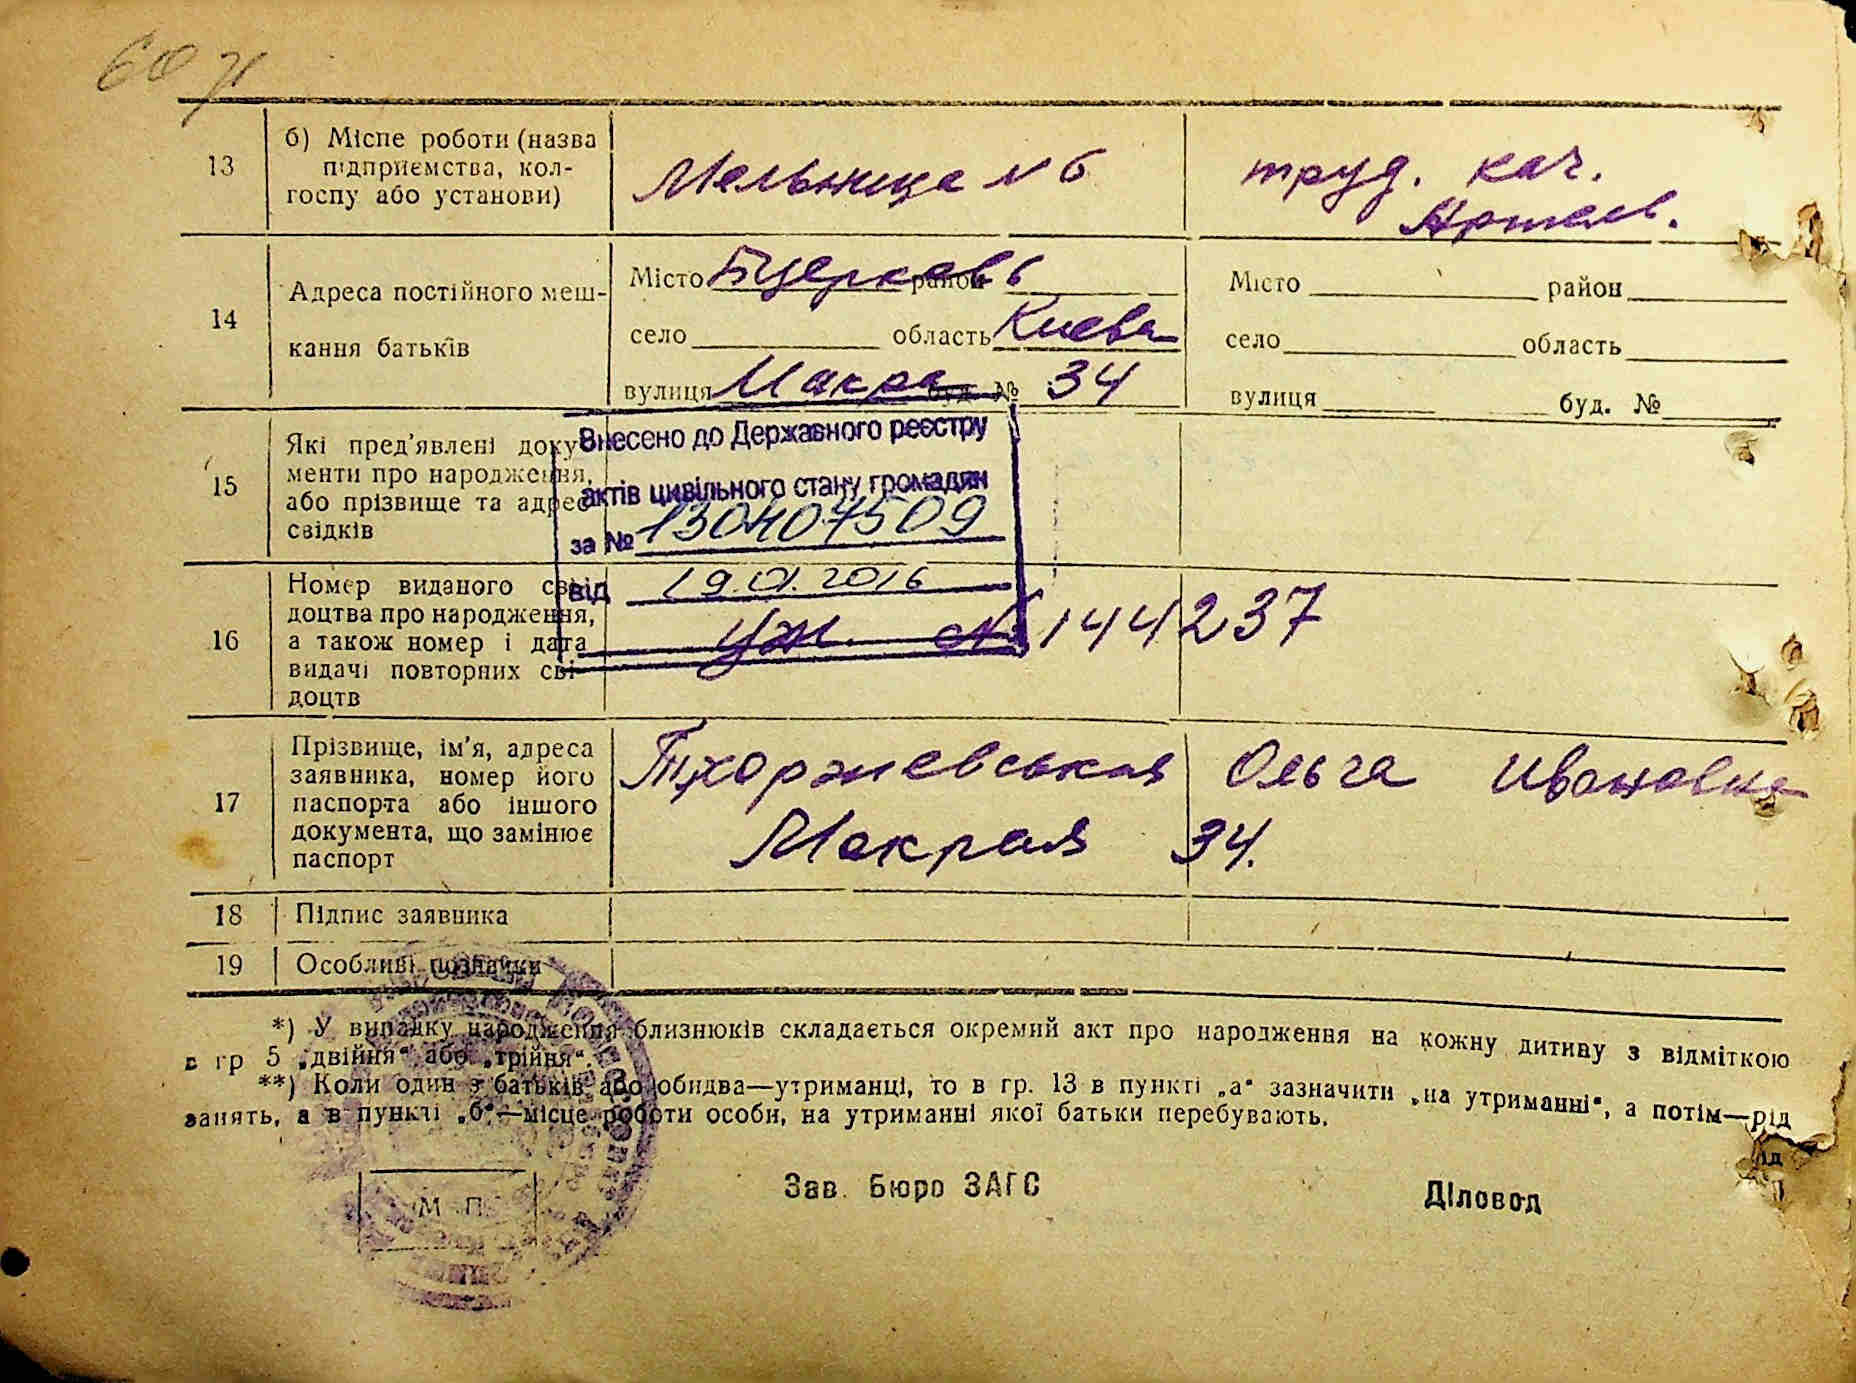 13
б) Місце роботи (назва
підприємства, кол-
госпу або установи)
Мельница № 6
труд. кач.
Артель.
14
Адреса постійного меш-
кання батьків
Місто Бцерковь район
село область Киевс
вулиця Макра буд. № 34
Місто район
село область
вулиця буд. №
15
Які пред'явлені доку-
менти про народження,
або прізвище та адрес
свідків
Внесено до Державного реєстру
актів цивільного стану громадян
за № 130407509
від 19.01.2016
16
Номер виданого сві-
доцтва про народження,
а також номер і дата
видачі повторних сві-
доцтв
УЖ. № 144237
17
Прізвище, ім'я, адреса
заявника, номер його
паспорта або іншого
документа, що замінює
паспорт
Тхоржевськая Ольга Ивановна
Мокрая 34.
18
Підпис заявника
19
Особливі позначки
*) У випадку народження близнюків складається окремий акт про народження на кожну дитину з відміткою
в гр 5 „двійня“ або „трійня“.
**) Коли один з батьків або обидва—утриманці, то в гр. 13 в пункті „а“ зазначити „на утриманні“, а потім—рід
занять, а в пункті „б“—місце роботи особи, на утриманні якої батьки перебувають.
М П
Зав. Бюро ЗАГС
Діловод